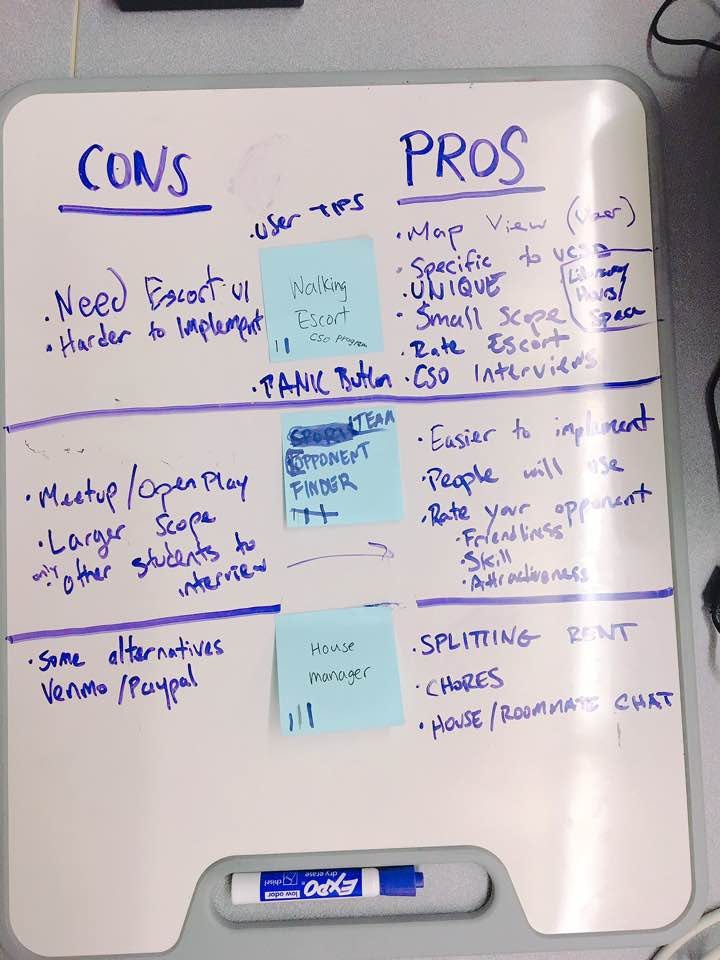 CONS
PROS
• USER TIPS
• Need Escort UI
• Harder to Implement
Walking
Escort
CSO Program
• PANIC Button
• Map View (User)
• Specific to UCSD
• UNIQUE
• Small Scope
• Rate Escort
• CSO Interviews
Library
Hours/
Space
• Meetup/OpenPlay
• Larger Scope
only
• other students to
interview
SPORT TEAM
OPPONENT
FINDER
• Easier to implement
• People will use
• Rate your opponent
• Friendliness
• Skill
• Attractiveness
• Some alternatives
Venmo/Paypal
House
manager
• SPLITTING RENT
• CHORES
• HOUSE/ROOMMATE CHAT
EXPO
dry erase
low odor
chisel